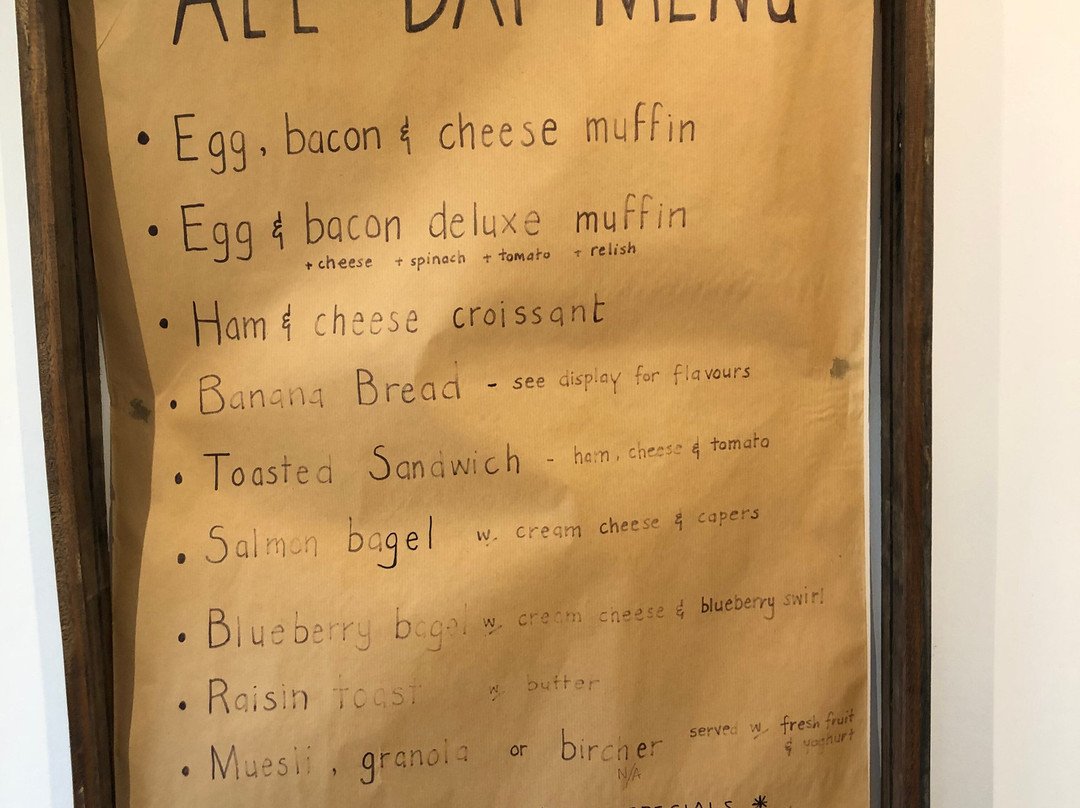 ALL DAY MENU
• Egg, bacon & cheese muffin
• Egg & bacon deluxe muffin
+ cheese + spinach + tomato + relish
• Ham & cheese croissant
• Banana Bread - see display for flavours
• Toasted Sandwich - ham, cheese & tomato
• Salmon bagel w. cream cheese & capers
• Blueberry bagel w. cream cheese & blueberry swirl
• Raisin toast w. butter
• Muesli, granola or bircher served w. fresh fruit
& yoghurt
N/A
SPECIALS *